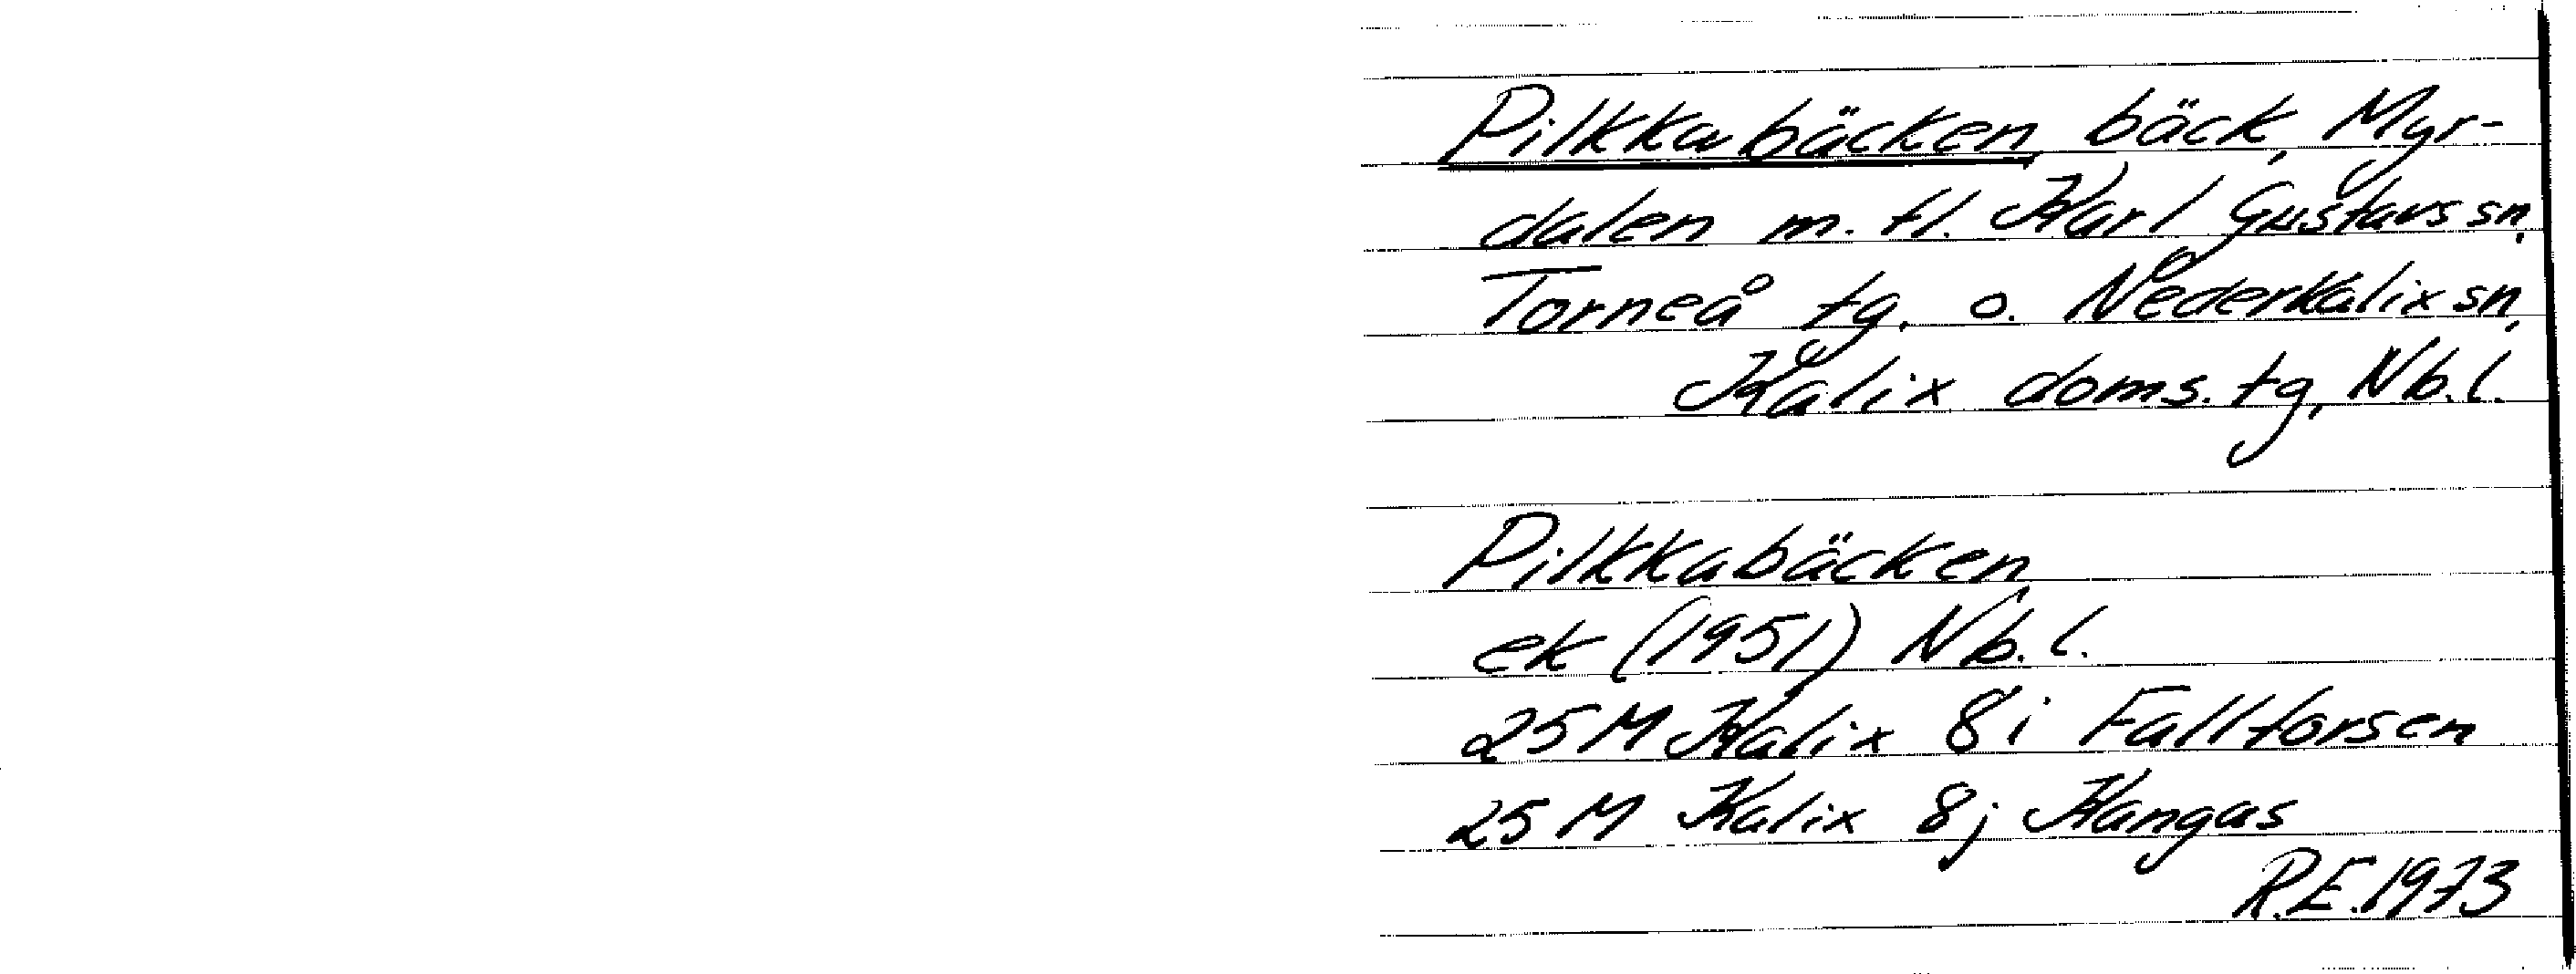 Pilkkabäcken, bäck, Myr-
dalen m. fl. Karl Gustavs sn,
Torneå tg. o. Nederkalix sn,
Kalix doms. tg, Nb. l.
Pilkkabäcken
ek (1951) Nb. l.
25 M Kalix 8i Fallforsen
25 M Kalix 8j Kangas
R.E. 1973